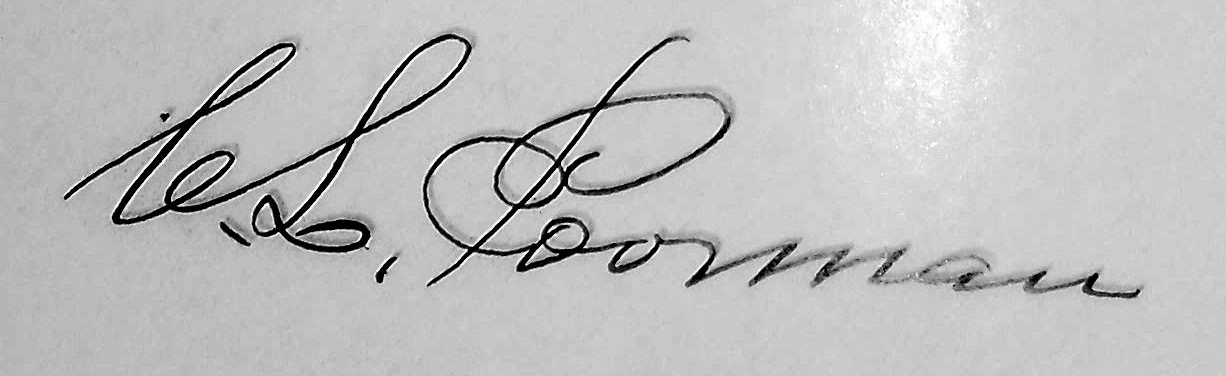 C. L. Poorman